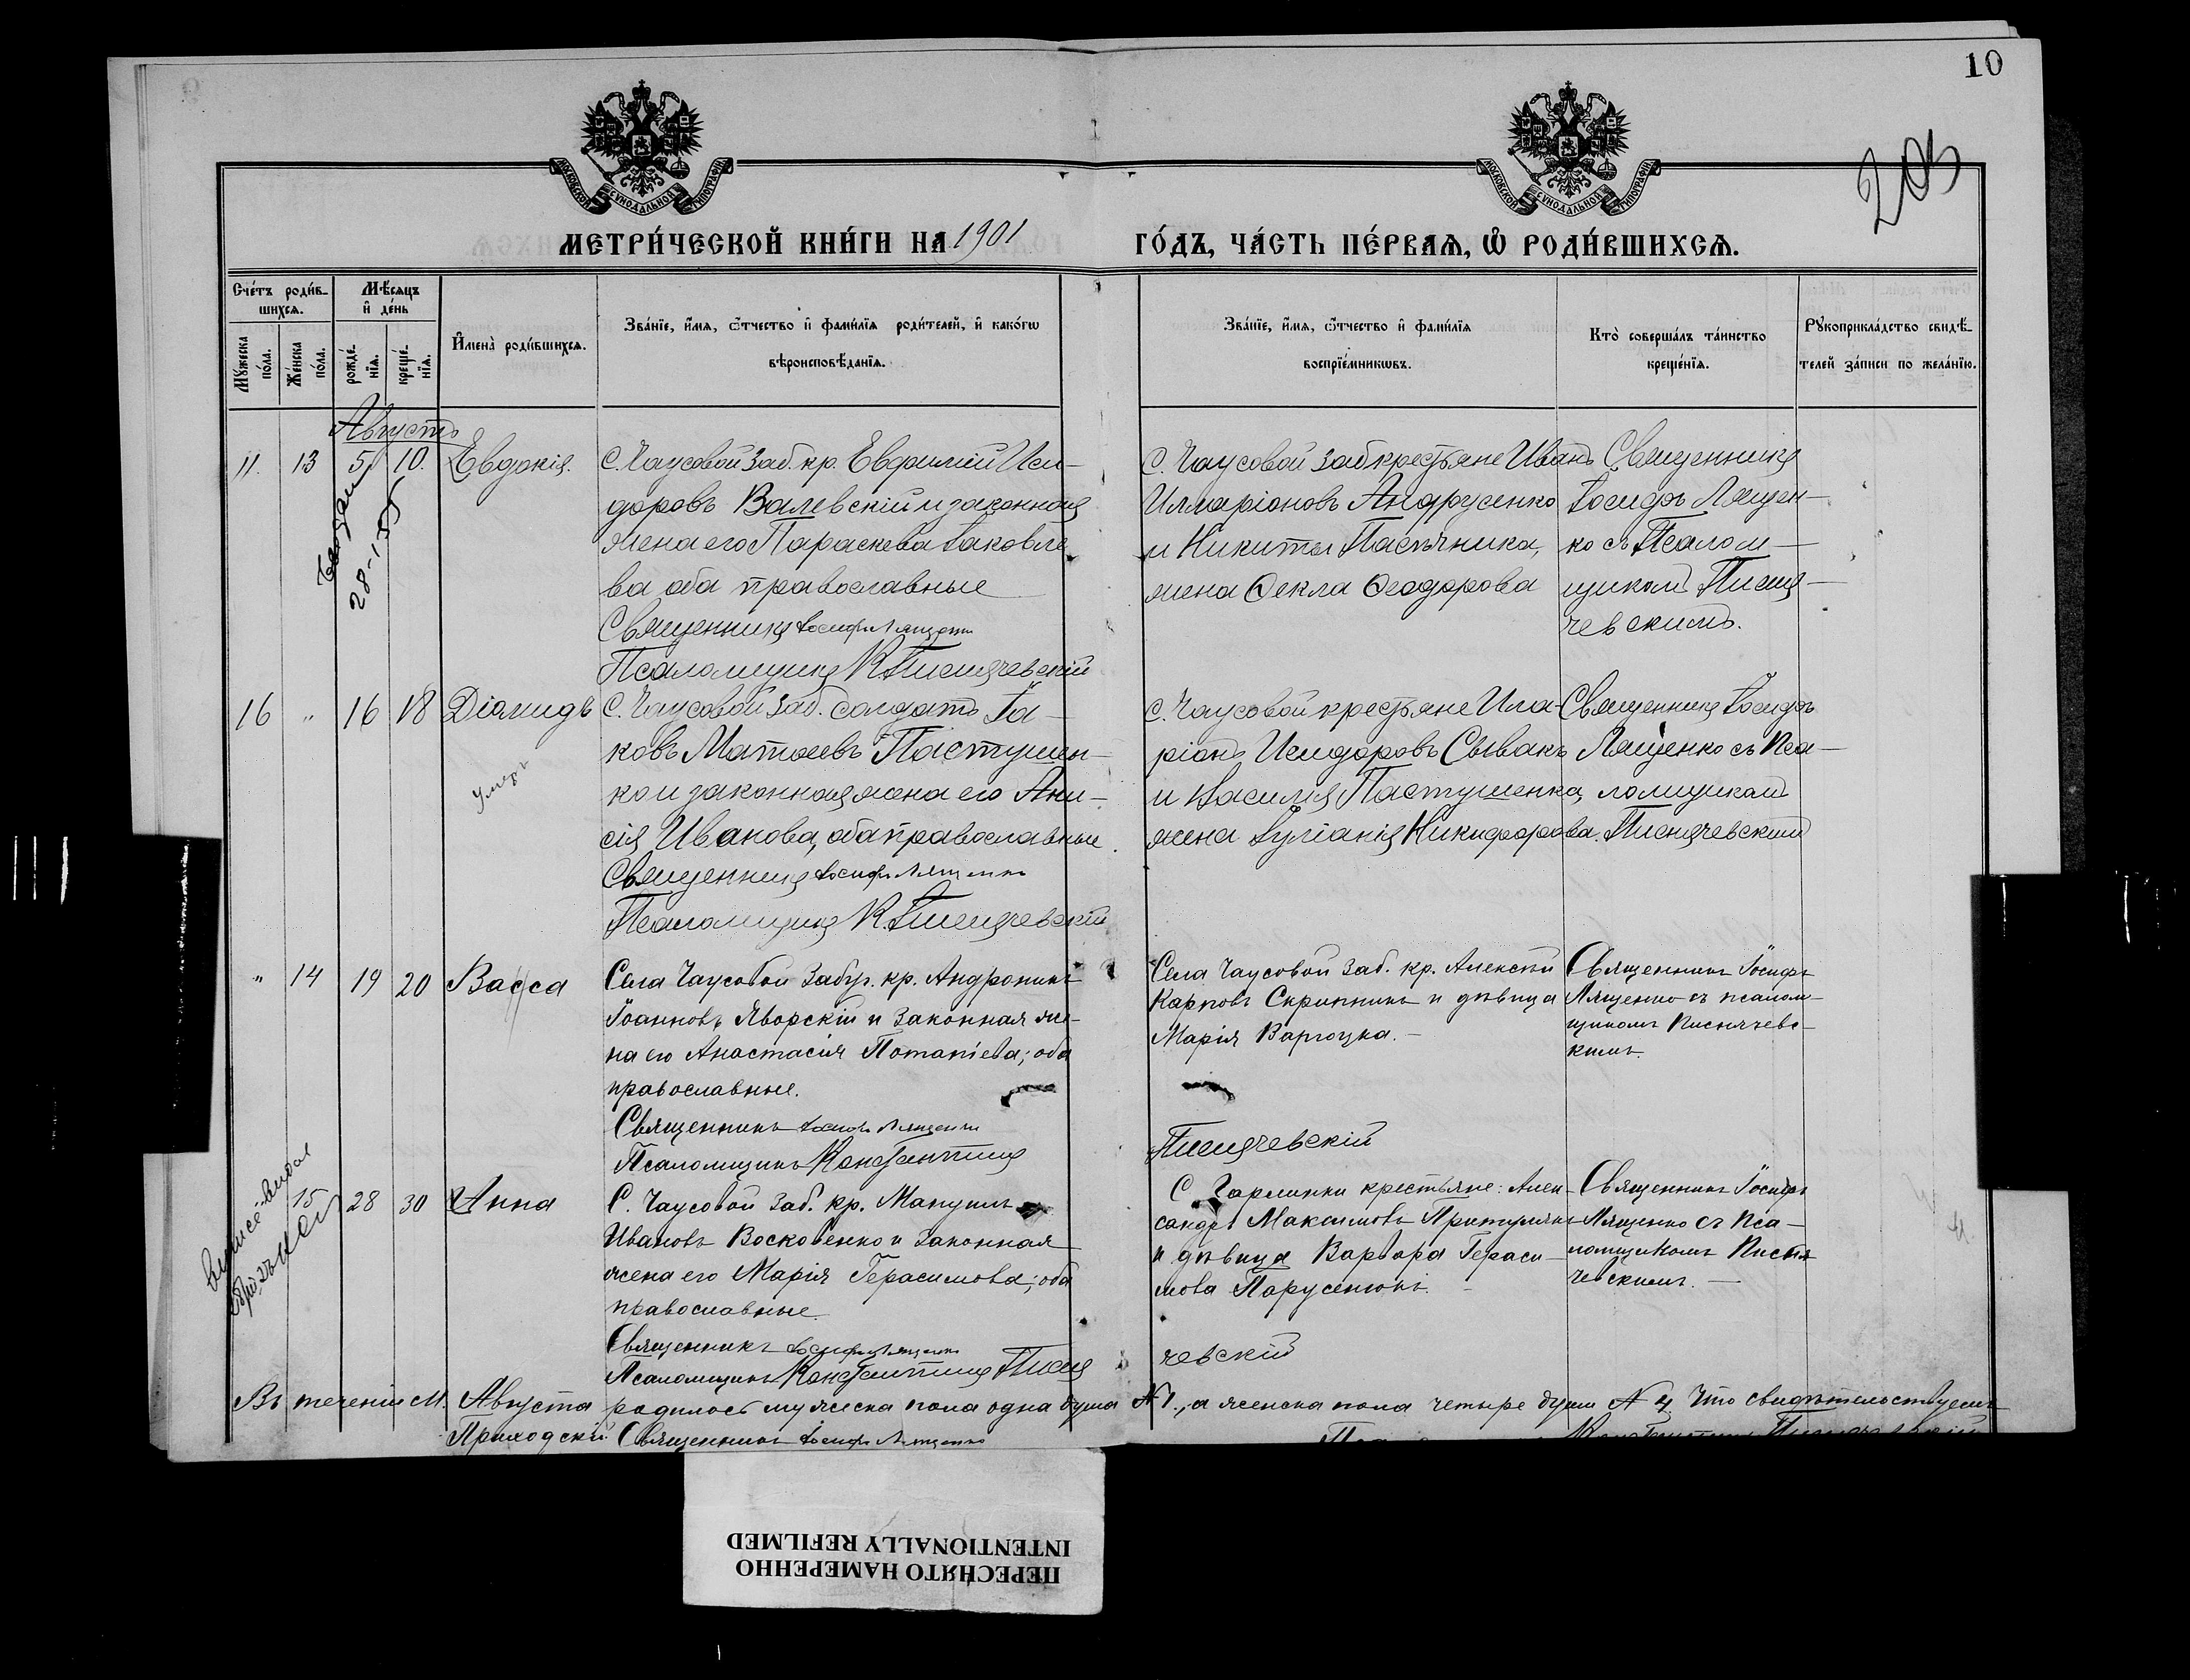 10
203
МОСКОВСКОЙ СѴНОДАЛЬНОЙ ТИПОГРАФІИ
МОСКОВСКОЙ СѴНОДАЛЬНОЙ ТИПОГРАФІИ
МЕТРИ́ЧЕСКОЙ КНИ́ГИ НА 1901
ГО́ДЪ, ЧА́СТЬ ПЕ́РВАѦ, Ѽ РОДИ́ВШИХСѦ.
Сче́тъ роди́в-
шихсѧ.
Мꙋ́жеска по́ла.
Же́нска по́ла.
Мѣ́сѧцъ
и҆ де́нь
рожде́-
нїѧ.
креще́-
нїѧ.
И҆мена̀ роди́вшихсѧ.
Зва́нїе, и҆́мѧ, ѻ҆́тчество и҆ фами́лїѧ роди́телей, и҆ како́гѡ
вѣроисповѣ́данїѧ.
Зва́нїе, и҆́мѧ, ѻ҆́тчество и҆ фами́лїѧ
воспрїе́мникѡвъ.
Кто̀ соверша́лъ та́инство
креще́нїѧ.
Рꙋкоприкла́дство свидѣ́-
телей за́писи по жела́нїю.
Августъ
11. 13 5 10. Евдокія.
28-1-
С. Чаусовой Заб. кр. Евфимій Иси-
доровъ Валевскій и законная
жена его Параскева Іаковле
ва оба православные
Священникъ Іосифъ Лященко
Псаломщикъ К. Писнячевскій
С. Чаусовой Заб крестьяне Иванъ
Илларіоновъ Андрусенко
и Никиты Пасѣчника,
жена Ѳекла Ѳеодорова
Священникъ
Іосифъ Лящен-
ко съ Псалом-
щикомъ Писня-
чевскимъ.
16 " 16 18 Діамидъ
умеръ
С. Чаусовой Заб. солдатъ Іа-
ковъ Матѳеевъ Пастушен-
ко и законная жена его Ани-
сія Иванова, оба православные.
Священникъ Іосифъ Лященко
Псаломщикъ К. Писнячевскій
С. Чаусовой крестьяне Ила-
ріонъ Исидоровъ Сывакъ
и Василія Пастушенка,
жена Іуліанія Никифорова.
Священникъ Іосифъ
Лященко съ Пса-
ломщикомъ
Писнячевскимъ
" 14 19 20 Васса
Села Чаусовой Забуг. кр. Андроникъ
Іоанновъ Яворскій и законная же-
на его Анастасія Потапіева; оба
православные.
Священникъ Іосифъ Лященко
Псаломщикъ Константинъ
Писнячевскій
Села Чаусовой Заб. кр. Алексѣй
Карповъ Скрипникъ и дѣвица
Марія Вароцка.-
Священникъ Іосифъ
Лященко съ псалом-
щикомъ Писнячевс-
кимъ.
15 28 30 Анна
С. Чаусовой Заб. кр. Мануилъ
Ивановъ Восковенко и законная
жена его Марія Герасимова; оба
православные.
Священникъ Іосифъ Лященко
Псаломщикъ Константинъ Писня
чевскій
С. крестьяне: Алек-
сандръ Максимовъ Притулякъ
и дѣвица Варвара Гераси-
мова
Священникъ Іосифъ
Лященко съ Пса-
ломщикомъ Писня
чевскимъ.-
Въ теченіи М. Августа родилось мужеска пола одна душа № 1., а женска пола четыре души № 4. Что свидѣтельствуемъ
Приходскій Священникъ Іосифъ Лященко
ПЕРЕСНЯТО НАМЕРЕННО
INTENTIONALLY REFILMED